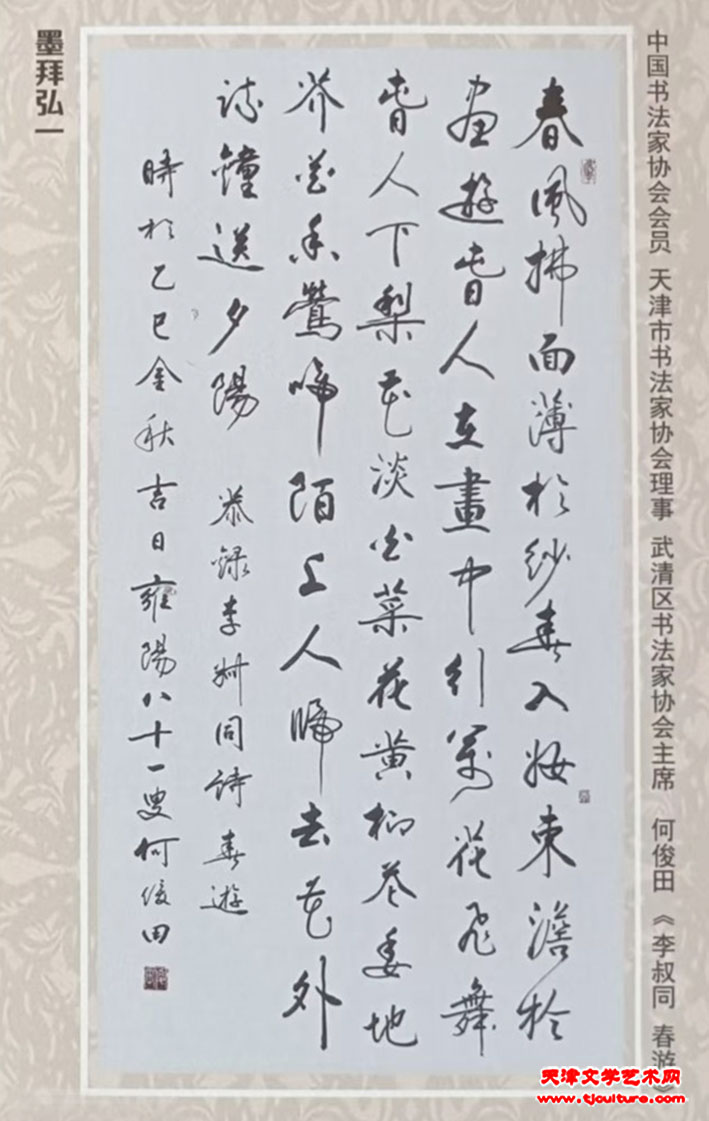 中国书法家协会会员 天津市书法家协会理事 武清区书法家协会主席 何俊田 《李叔同 春游》
春風拂面薄於紗春入妝束澹於
畫遊春人在畫中行萬花飛舞
春人下梨花淡白菜花黄柳花委地
芥花香鶯啼陌上人歸去花外
疏鐘送夕陽 恭録李叔同詩春遊
時於乙巳金秋吉日雍陽八十一叟何俊田
墨拜弘一
天津文学艺术网
www.tjculture.com